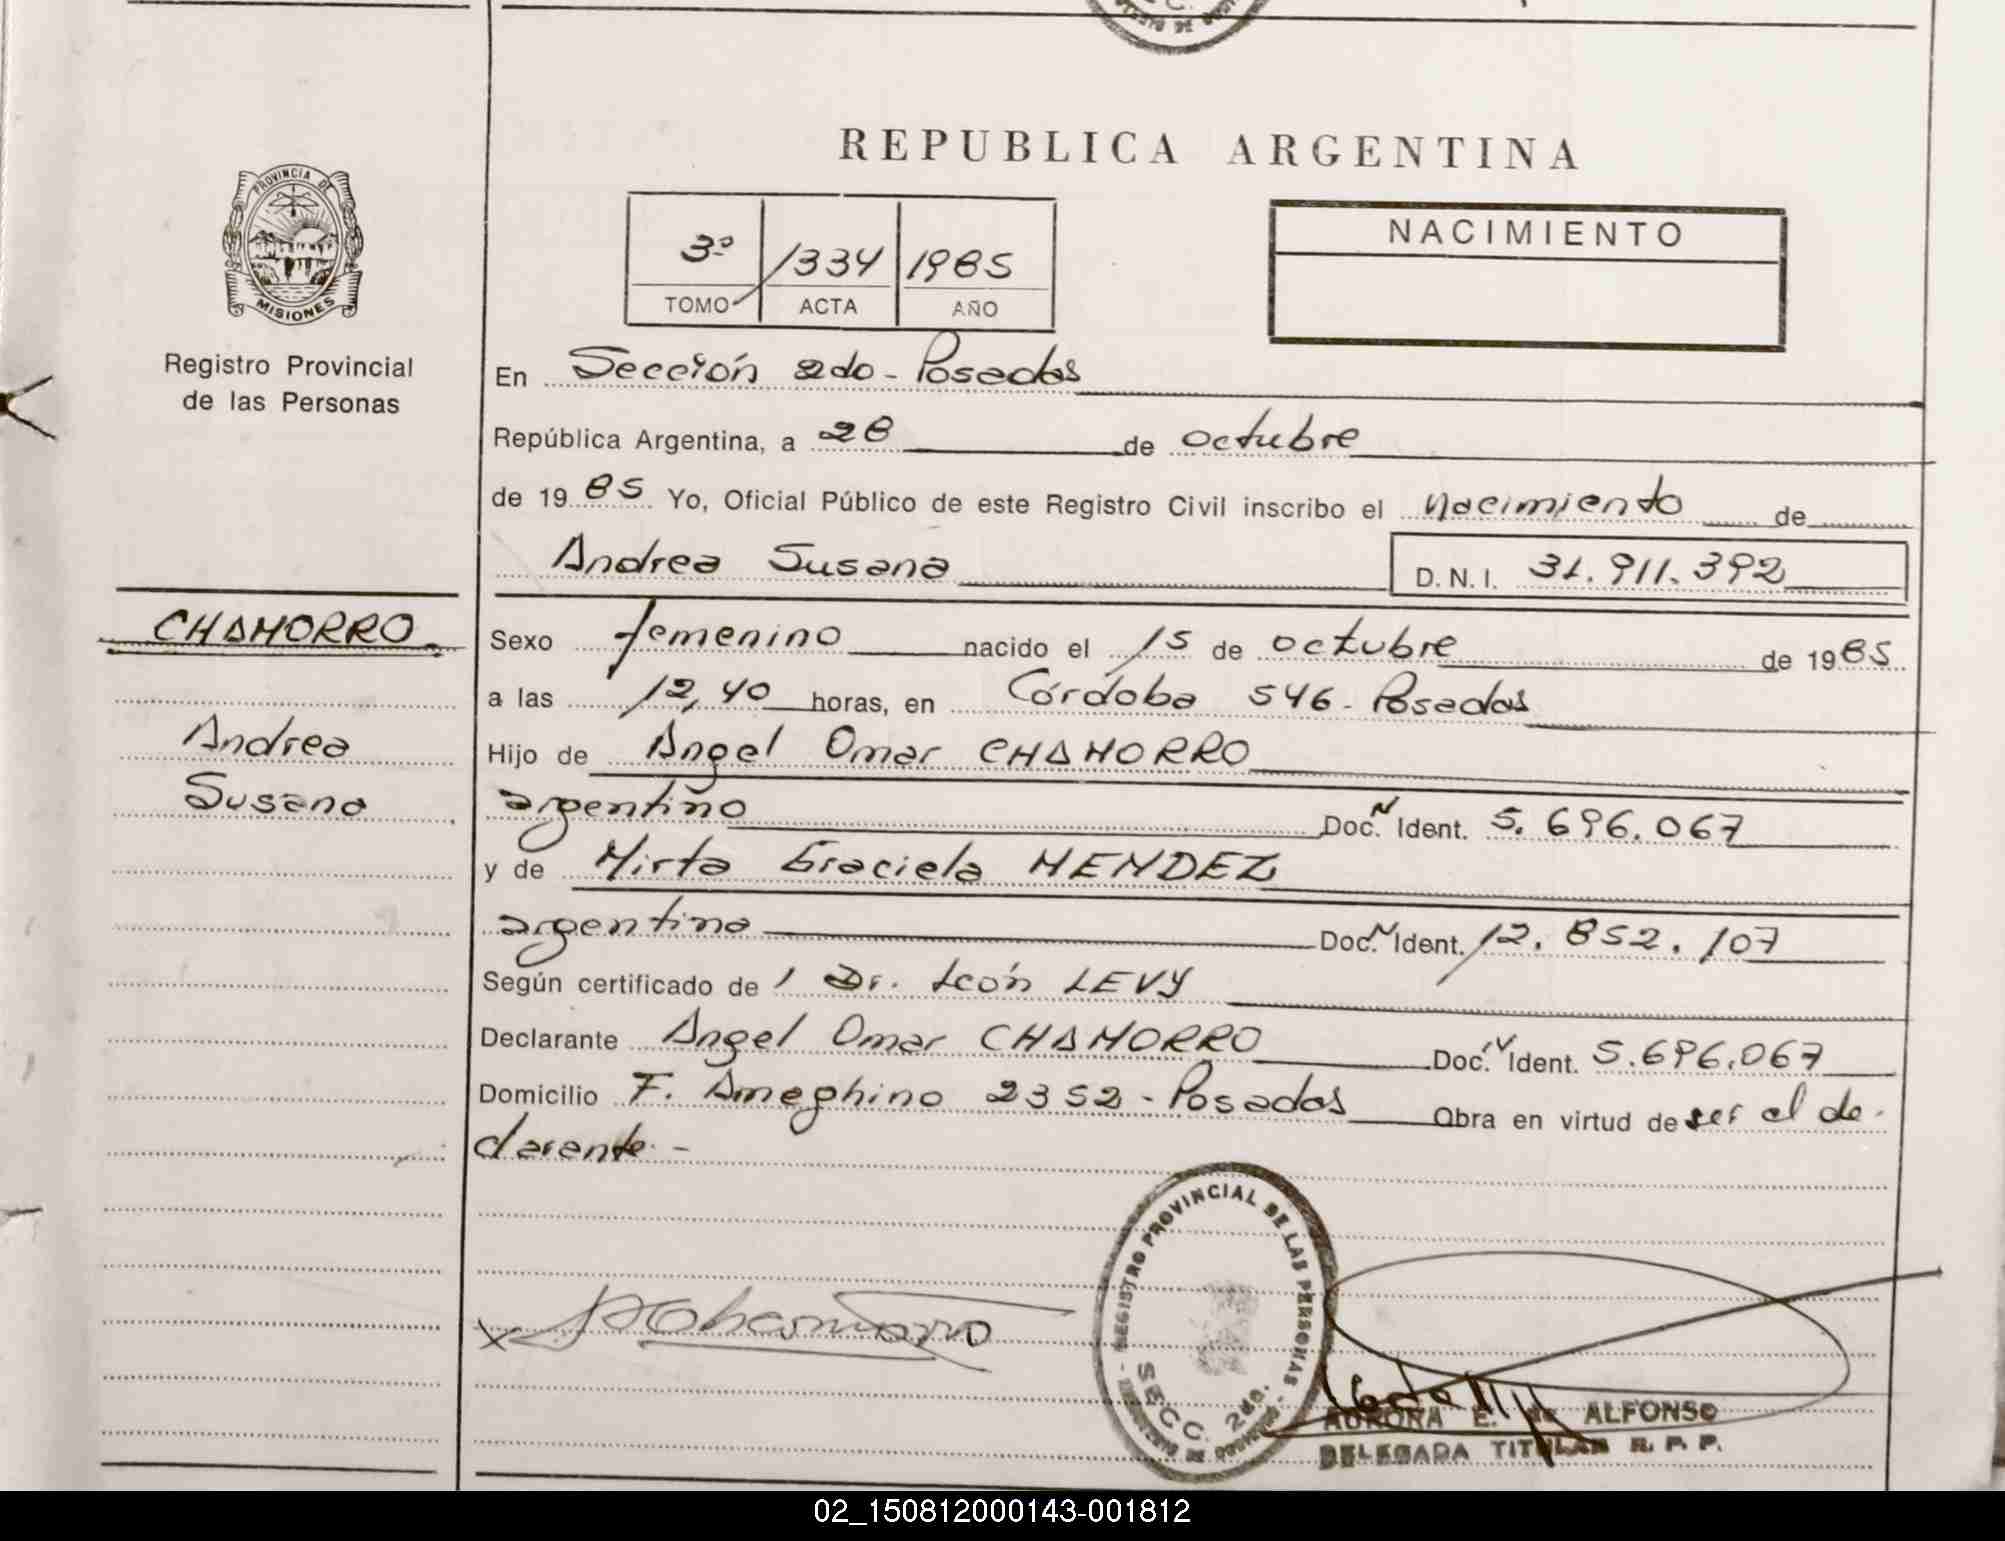 REPUBLICA ARGENTINA
PROVINCIA DE
MISIONES
Registro Provincial
de las Personas
3º 1334 1985
TOMO ACTA AÑO
NACIMIENTO
En Sección 2do - Posadas
República Argentina, a 28 de octubre
de 1985 Yo, Oficial Público de este Registro Civil inscribo el nacimiento de
Andrea Susana D.N.I. 31.911.392
CHAMORRO
Andrea
Susana
Sexo femenino nacido el 15 de octubre de 1985
a las 12,40 horas, en Córdoba 546 - Posadas
Hijo de Angel Omar CHAMORRO
argentino Doc. N Ident. 5.696.067
y de Mirta Graciela MENDEZ
argentina Doc. N Ident. 12.852.107
Según certificado de Dr. León LEVY
Declarante Angel Omar CHAMORRO Doc. N Ident. 5.696.067
Domicilio F. Ameghino 2352 - Posadas Obra en virtud de ser el de-
clarente -
REGISTRO PROVINCIAL DE LAS PERSONAS
SECC. 2da.
AURORA E. de ALFONSO
DELEGADA TITULAR R. P. P.
02_150812000143-001812